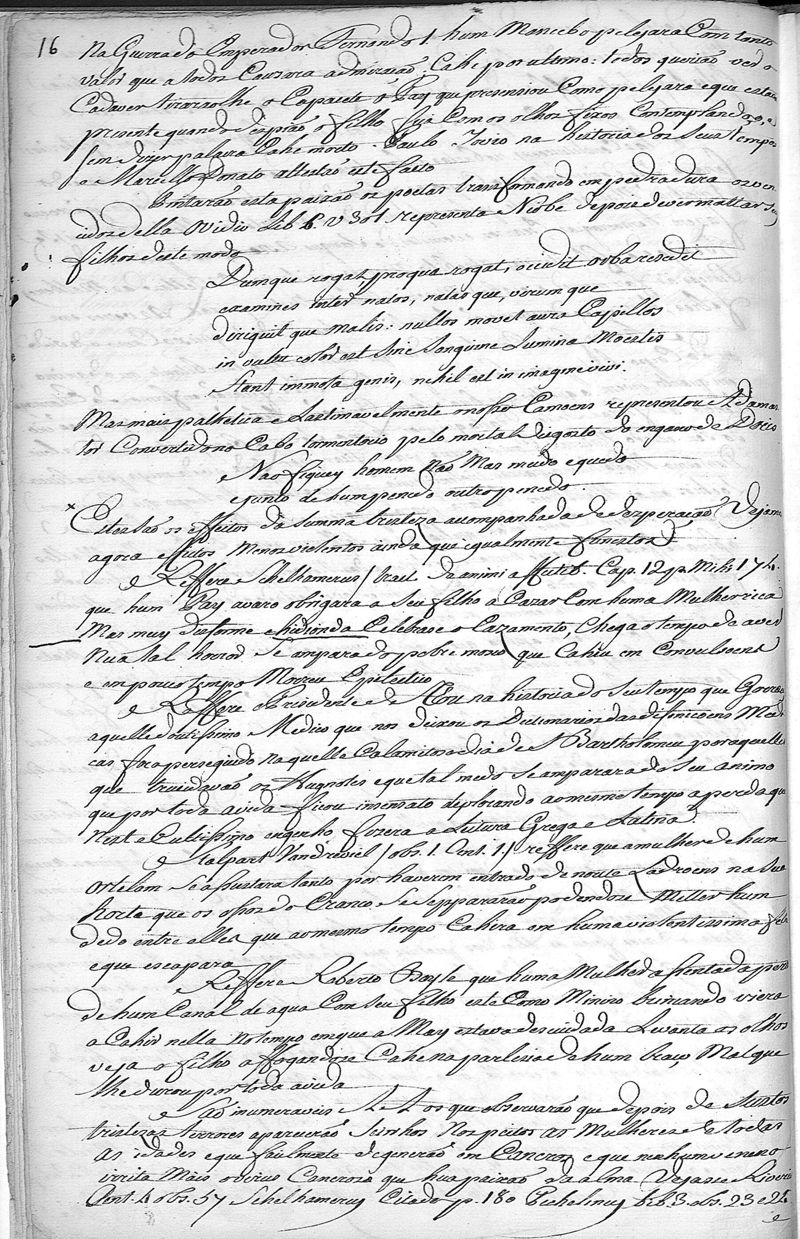 16
Na Guerra do Emperador Fernando 1. hum Mancebo pelejara Com tanto
valor que a todos Cauzara admiração, Cahe por ultimo: todos querião ver o
Cadaver tirarãolhe o Capacete o Pay que prezenciou Como pelejara e que estava
prezente quando espirão o filho fica Com os olhos fixos Contemplandoo, e
sem dizer palavra Cahe morto. Paulo Jovio na historia dos Seus tempos
e Marcello Donato attestão este facto
Imitarão esta paixão os poetas transformando em pedra dura os ven
cidos della Ovidio Lib. 6. v 301 representa Niobe depois de ver matar seus
filhos deste modo
Dumque rogat, pro qua rogat, occidit orba resedit
exanimes inter natos, natasque, virumque
diriguit que malis: nullos movet aura Capillos
in vultu color est sine sanguine Lumina Moestis
stant immota genis, nihil est in imagine vivi.
Mas mais pathetica e Lastimavelmente o nosso Camoens representou Adamas
tor Convertido no Cabo tormentorio pelo mortal disgosto do engano de Doris
Não fiquey homem não Mas mudo e quedo
e junto de hum penedo outro penedo.
× Estes são os effeitos da summa tristeza acompanhada de dezperação Vejamos
agora effeitos Menos violentos ainda que igualmente funestos.
Reffere Schelhamerus / tract. de animi affectib. Cap. 12 p. mihi 174.
que hum Pay avaro obrigara a Seu filho a Cazar Com huma Mulher rica
Mas muy disforme e hidionda Celebrase o Cazamento, Chega o tempo de a ver
Nua tal horror Se amparado pobre moço que Cahiu em Convulsoens
e em pouco tempo Morreu Epileptico
Reffere o Prezidente de Thou na historia do Seu tempo que Gorreo
aquelle doutissimo Medico que nos deixou os Dictionarios das difiniçoens Medi
cas fora perseguido naquelle Calamitozo dia de S Bartholomeu por aquelles
que trucidavão os Hugnotes e que tal medo Se amparara do Seu animo
que por toda a vida ficou insensato deplorando ao mesmo tempo a perda que
neste Cultissimo engenho fizera a Leitura Grega e Latina.
Stalpart Vandrewiel / obs. 1. Cent. 1. / reffere que a mulher de hum
ortelam Se assustara tanto por haverem entrado de noute Ladroens na sua
horta que os ossos do Craneo Se Seppararão podendose Metter hum
dedo entre elles que ao mesmo tempo Cahira em huma violentissima febre
e que escapara
Reffere Roberto Boyle que huma Mulher assentada perto
de hum Canal de agua Com Seu filho este Como Minino brincando viera
a Cahir nella no tempo em que a May estava descuidada Levanta os olhos
veja o filho affogandose Cahe na parlesia de hum braço Mal que
lhe durou por toda a vida
São inumeraveis A. A. os que observarão que depois de Sustos
tristezas terrores aparecerão Scirrhos Nos peitos as Mulheres de todas
as idades e que facilmente degenerão em Cancros e que nenhum veneno
irrita Mais o virus Canceroso que hua paixão da alma Vejase Riverio
Cent. 4 obs. 57 Schelhamerus Citado p. 180 Pechelinus Lib. 3. obs. 23 e 24
e